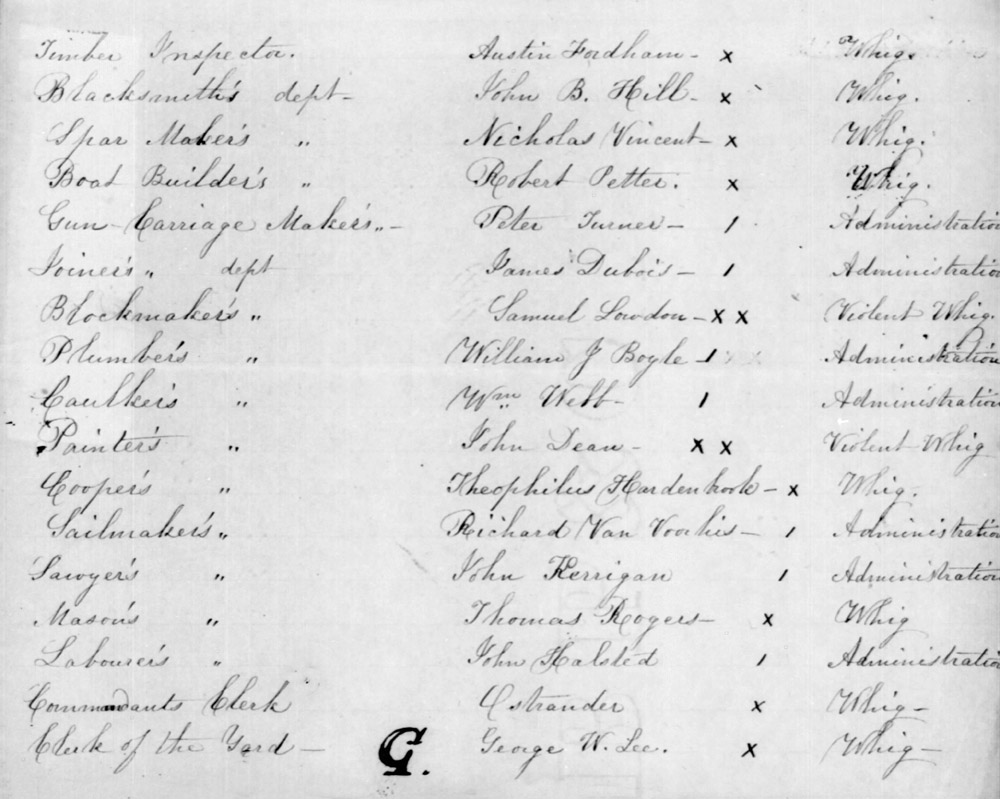 Timber Inspector. Austin Fordham - x Whig.
Blacksmith's dept - John B. Hill - x Whig.
Spar Maker's " Nicholas Vincent - x Whig.
Boat Builder's " Robert Petter. x Whig.
Gun Carriage Maker's " - Peter Turner - 1 Administration
Joiner's " dept James Dubois - 1 Administration
Blockmaker's " Samuel Lowdon - x x Violent Whig.
Plumber's " William J Boyle - 1 Administration
Caulker's " Wm Webb - 1 Administration
Painter's " John Dean - x x Violent Whig
Cooper's " Theophilus Hardenbrook - x Whig.
Sailmaker's " Richard Van Voorhis - 1 Administration
Sawyer's " John Kerrigan 1 Administration
Mason's " Thomas Rogers - x Whig
Labourer's " John Halsted 1 Administration
Commandants Clerk Ostrander x Whig -
Clerk of the Yard - George W. Lee. x Whig -
G.